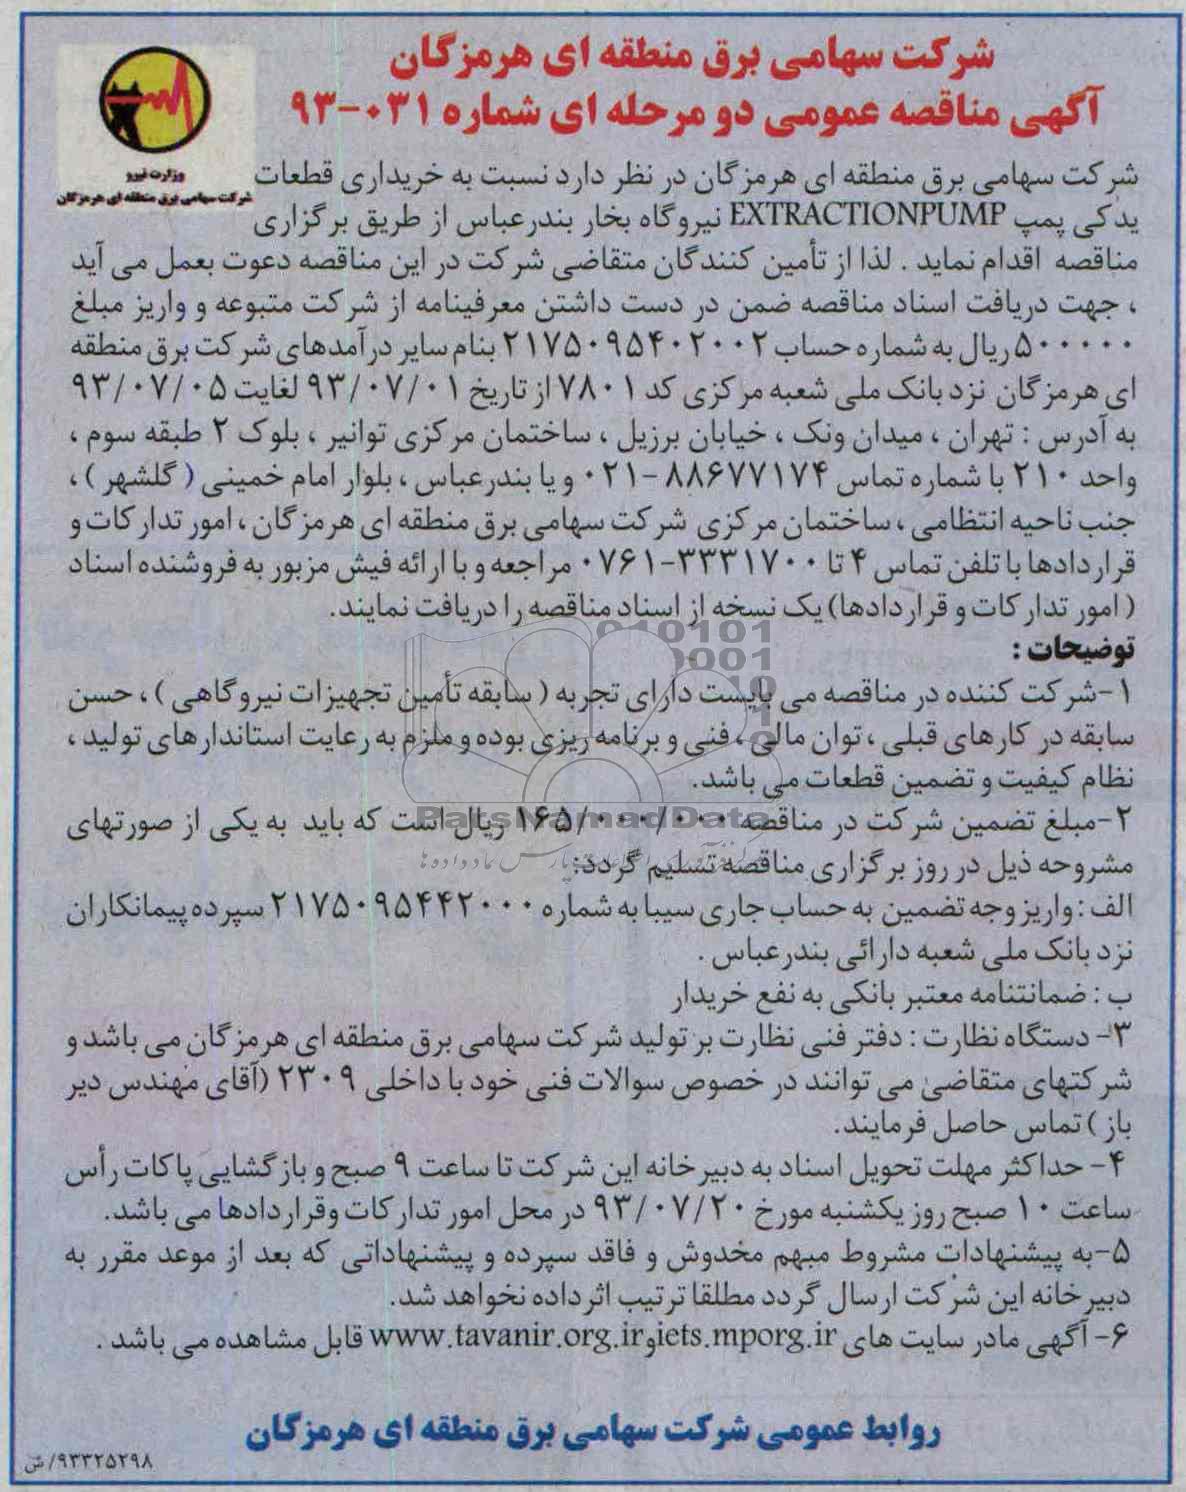 شرکت سهامی برق منطقه ای هرمزگان
آگهی مناقصه عمومی دو مرحله ای شماره ۰۳۱-۹۳
وزارت نیرو
شرکت سهامی برق منطقه ای هرمزگان
شرکت سهامی برق منطقه ای هرمزگان در نظر دارد نسبت به خریداری قطعات
یدکی پمپ EXTRACTIONPUMP نیروگاه بخار بندرعباس از طریق برگزاری
مناقصه اقدام نماید . لذا از تأمین کنندگان متقاضی شرکت در این مناقصه دعوت بعمل می آید
، جهت دریافت اسناد مناقصه ضمن در دست داشتن معرفینامه از شرکت متبوعه و واریز مبلغ
۵۰۰۰۰۰ ریال به شماره حساب ۲۱۷۵۰۹۵۴۰۲۰۰۲ بنام سایر درآمدهای شرکت برق منطقه
ای هرمزگان نزد بانک ملی شعبه مرکزی کد ۷۸۰۱ از تاریخ ۹۳/۰۷/۰۱ لغایت ۹۳/۰۷/۰۵
به آدرس : تهران ، میدان ونک ، خیابان برزیل ، ساختمان مرکزی توانیر ، بلوک ۲ طبقه سوم ،
واحد ۲۱۰ با شماره تماس ۸۸۶۷۷۱۷۴-۰۲۱ و یا بندرعباس ، بلوار امام خمینی ( گلشهر ) ،
جنب ناحیه انتظامی ، ساختمان مرکزی شرکت سهامی برق منطقه ای هرمزگان ، امور تدارکات و
قراردادها با تلفن تماس ۴ تا ۳۳۳۱۷۰۰-۰۷۶۱ مراجعه و با ارائه فیش مزبور به فروشنده اسناد
( امور تدارکات و قراردادها) یک نسخه از اسناد مناقصه را دریافت نمایند.
توضیحات :
۱-شرکت کننده در مناقصه می بایست دارای تجربه ( سابقه تأمین تجهیزات نیروگاهی ) ، حسن
سابقه در کارهای قبلی ، توان مالی ، فنی و برنامه ریزی بوده و ملزم به رعایت استاندارهای تولید ،
نظام کیفیت و تضمین قطعات می باشد.
۲-مبلغ تضمین شرکت در مناقصه ۱۶۵/۰۰۰/۰۰۰ ریال است که باید به یکی از صورتهای
ParsNamadData
مشروحه ذیل در روز برگزاری مناقصه تسلیم گردد:
الف : واریز وجه تضمین به حساب جاری سیبا به شماره ۲۱۷۵۰۹۵۴۴۲۰۰۰ سپرده پیمانکاران
نزد بانک ملی شعبه دارائی بندرعباس .
ب : ضمانتنامه معتبر بانکی به نفع خریدار
۳- دستگاه نظارت : دفتر فنی نظارت بر تولید شرکت سهامی برق منطقه ای هرمزگان می باشد و
شرکتهای متقاضی می توانند در خصوص سوالات فنی خود با داخلی ۲۳۰۹ (آقای مهندس دیر
باز ) تماس حاصل فرمایند.
۴- حداکثر مهلت تحویل اسناد به دبیرخانه این شرکت تا ساعت ۹ صبح و بازگشایی پاکات رأس
ساعت ۱۰ صبح روز یکشنبه مورخ ۹۳/۰۷/۲۰ در محل امور تدارکات وقراردادها می باشد.
۵-به پیشنهادات مشروط مبهم مخدوش و فاقد سپرده و پیشنهاداتی که بعد از موعد مقرر به
دبیرخانه این شرکت ارسال گردد مطلقا ترتیب اثر داده نخواهد شد.
۶- آگهی مادر سایت های iets.mporg.ir و www.tavanir.org.ir قابل مشاهده می باشد .
روابط عمومی شرکت سهامی برق منطقه ای هرمزگان
۹۳۳۲۵۲۹۸/ش